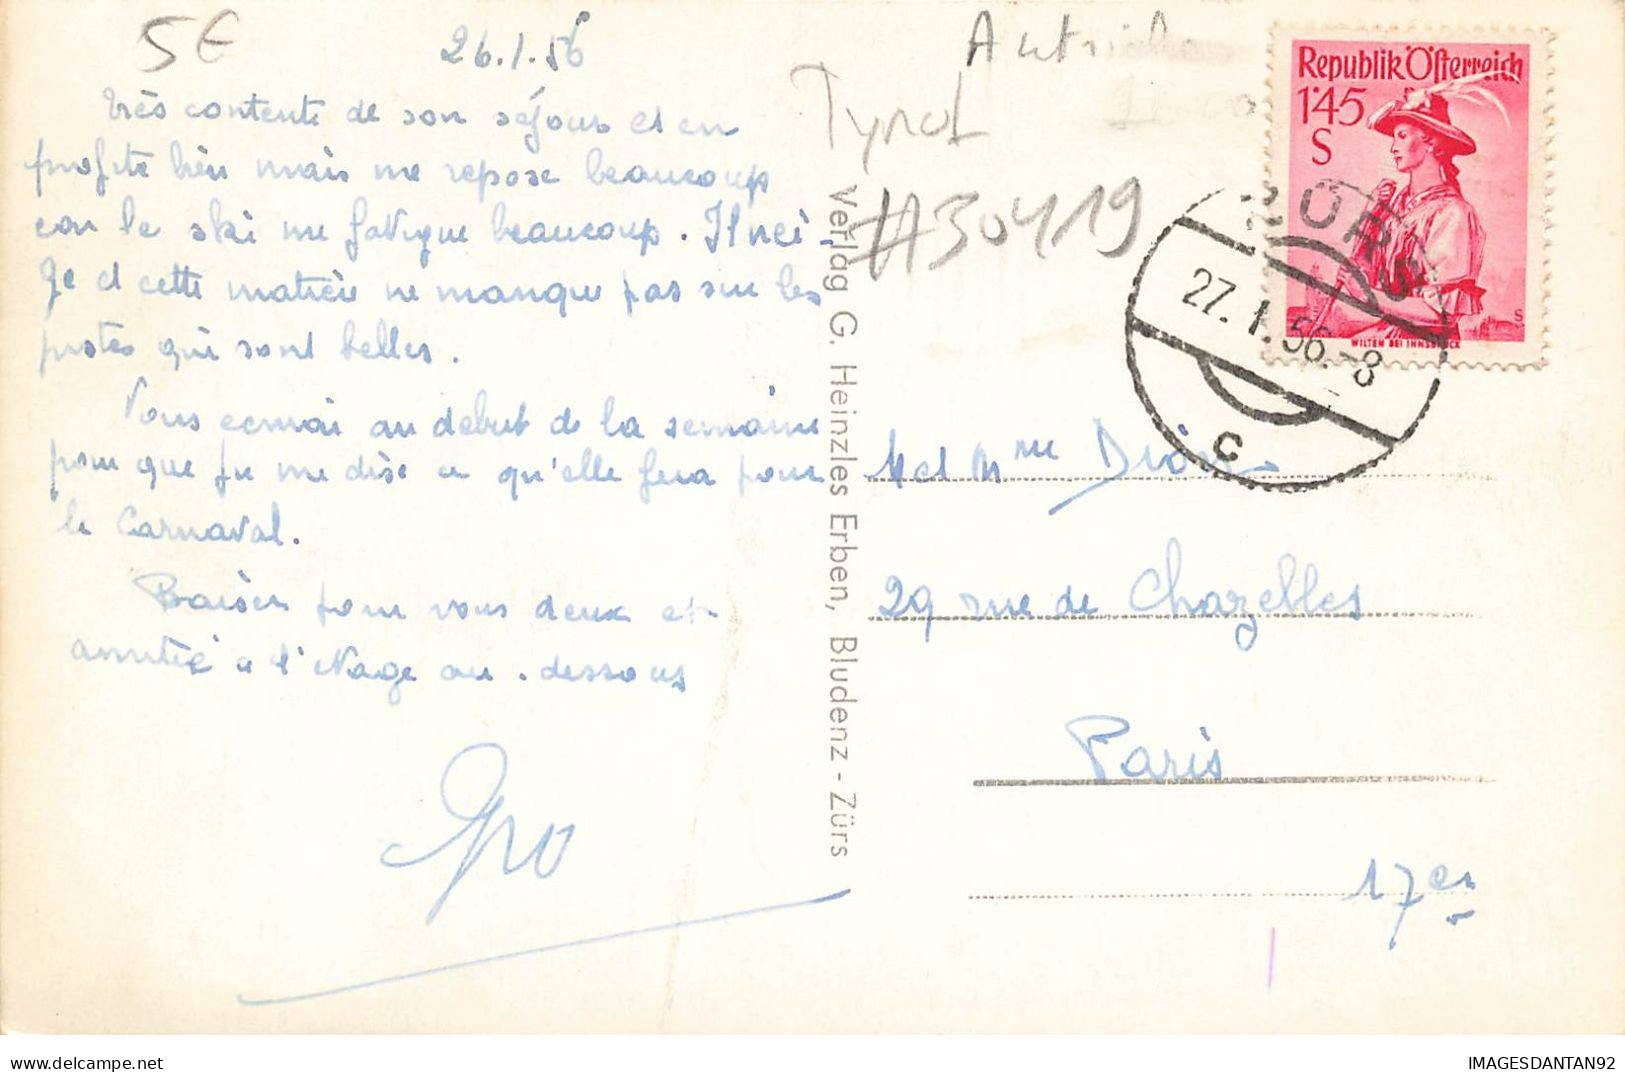 5€
26.1.56
Autriche
Tyrol
#30419
Très contente de son séjour et en
profite bien mais me repose beaucoup
car le ski me fatigue beaucoup. Il nei-
ge et cette matière ne manque pas sur les
pistes qui sont belles.
Vous écrirai au début de la semaine
pour que me dise ce qu'elle fera pour
le Carnaval.
Baiser pour vous deux et
amitié à l'étage au-dessous
Verlag G. Heinzles Erben, Bludenz - Zürs
Republik Österreich
1'45
S
WILTEN BEI INNSBRUCK
ZÜRS
27.1.56.-8
c
M et Mme
29 rue de Chazelles
Paris
17er
delcampe.net
IMAGESDANTAN92